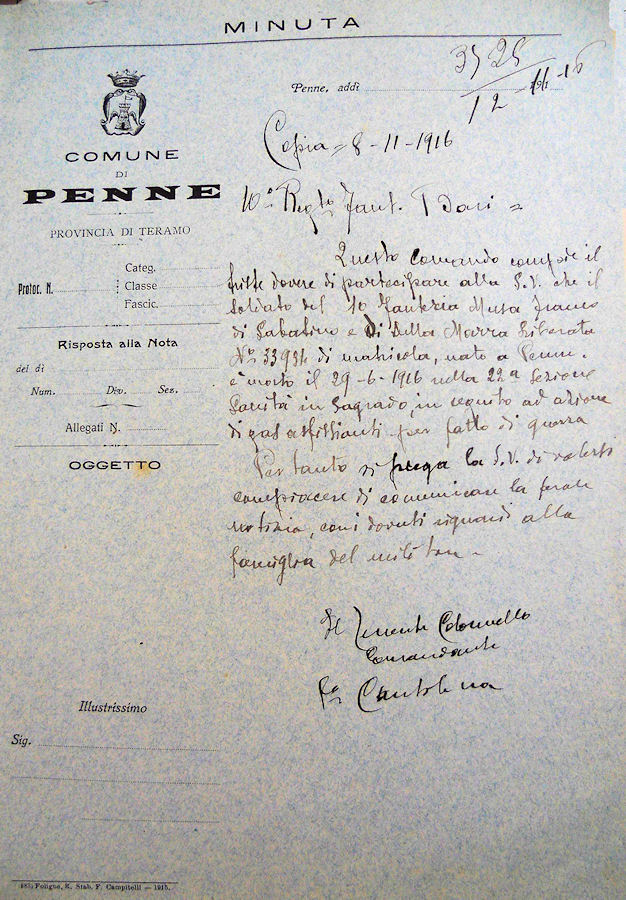 MINUTA
3525
Penne, addì 12-11-191 16
COMUNE
DI
PENNE
PROVINCIA DI TERAMO
Categ.
Protoc. N. Classe
Fascic.
Risposta alla Nota
del dì
Num. Div. Sez.
Allegati N.
OGGETTO
Copia = 8-11-1916
10° Regto Fant. Bari =
Questo Comando compie il
triste dovere di partecipare alla S.V. che il
soldato del 10 Fanteria Musa Franco
di Sabatino e di Della Marra Liberata
No 33934 di matricola, nato a Penne
è morto il 29-6-1916 nella 22a Sezione
Sanità in Sagrado, in seguito ad azione
di gas asfissianti per fatto di guerra
Pertanto si prega la S.V. di volersi
compiacere di comunicare la ferale
notizia, con i dovuti riguardi alla
famiglia del militare.
Il Tenente Colonnello
Comandante
Illustrissimo
Sig.
Foligno, R. Stab. F. Campitelli — 1915.